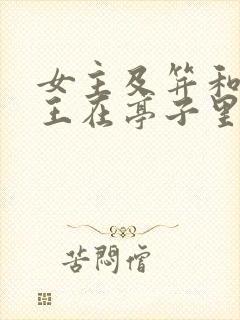 女主及笄和
王在亭子里
苦闷僧